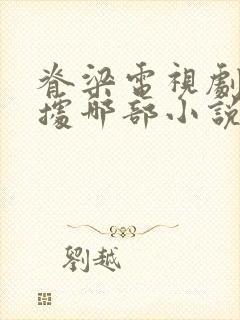 脊梁電視劇
據那部小說
劉越